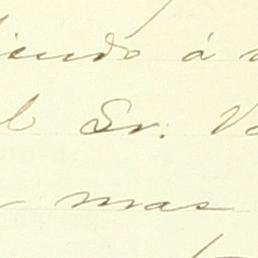 iendo á
l Sr. V
mas